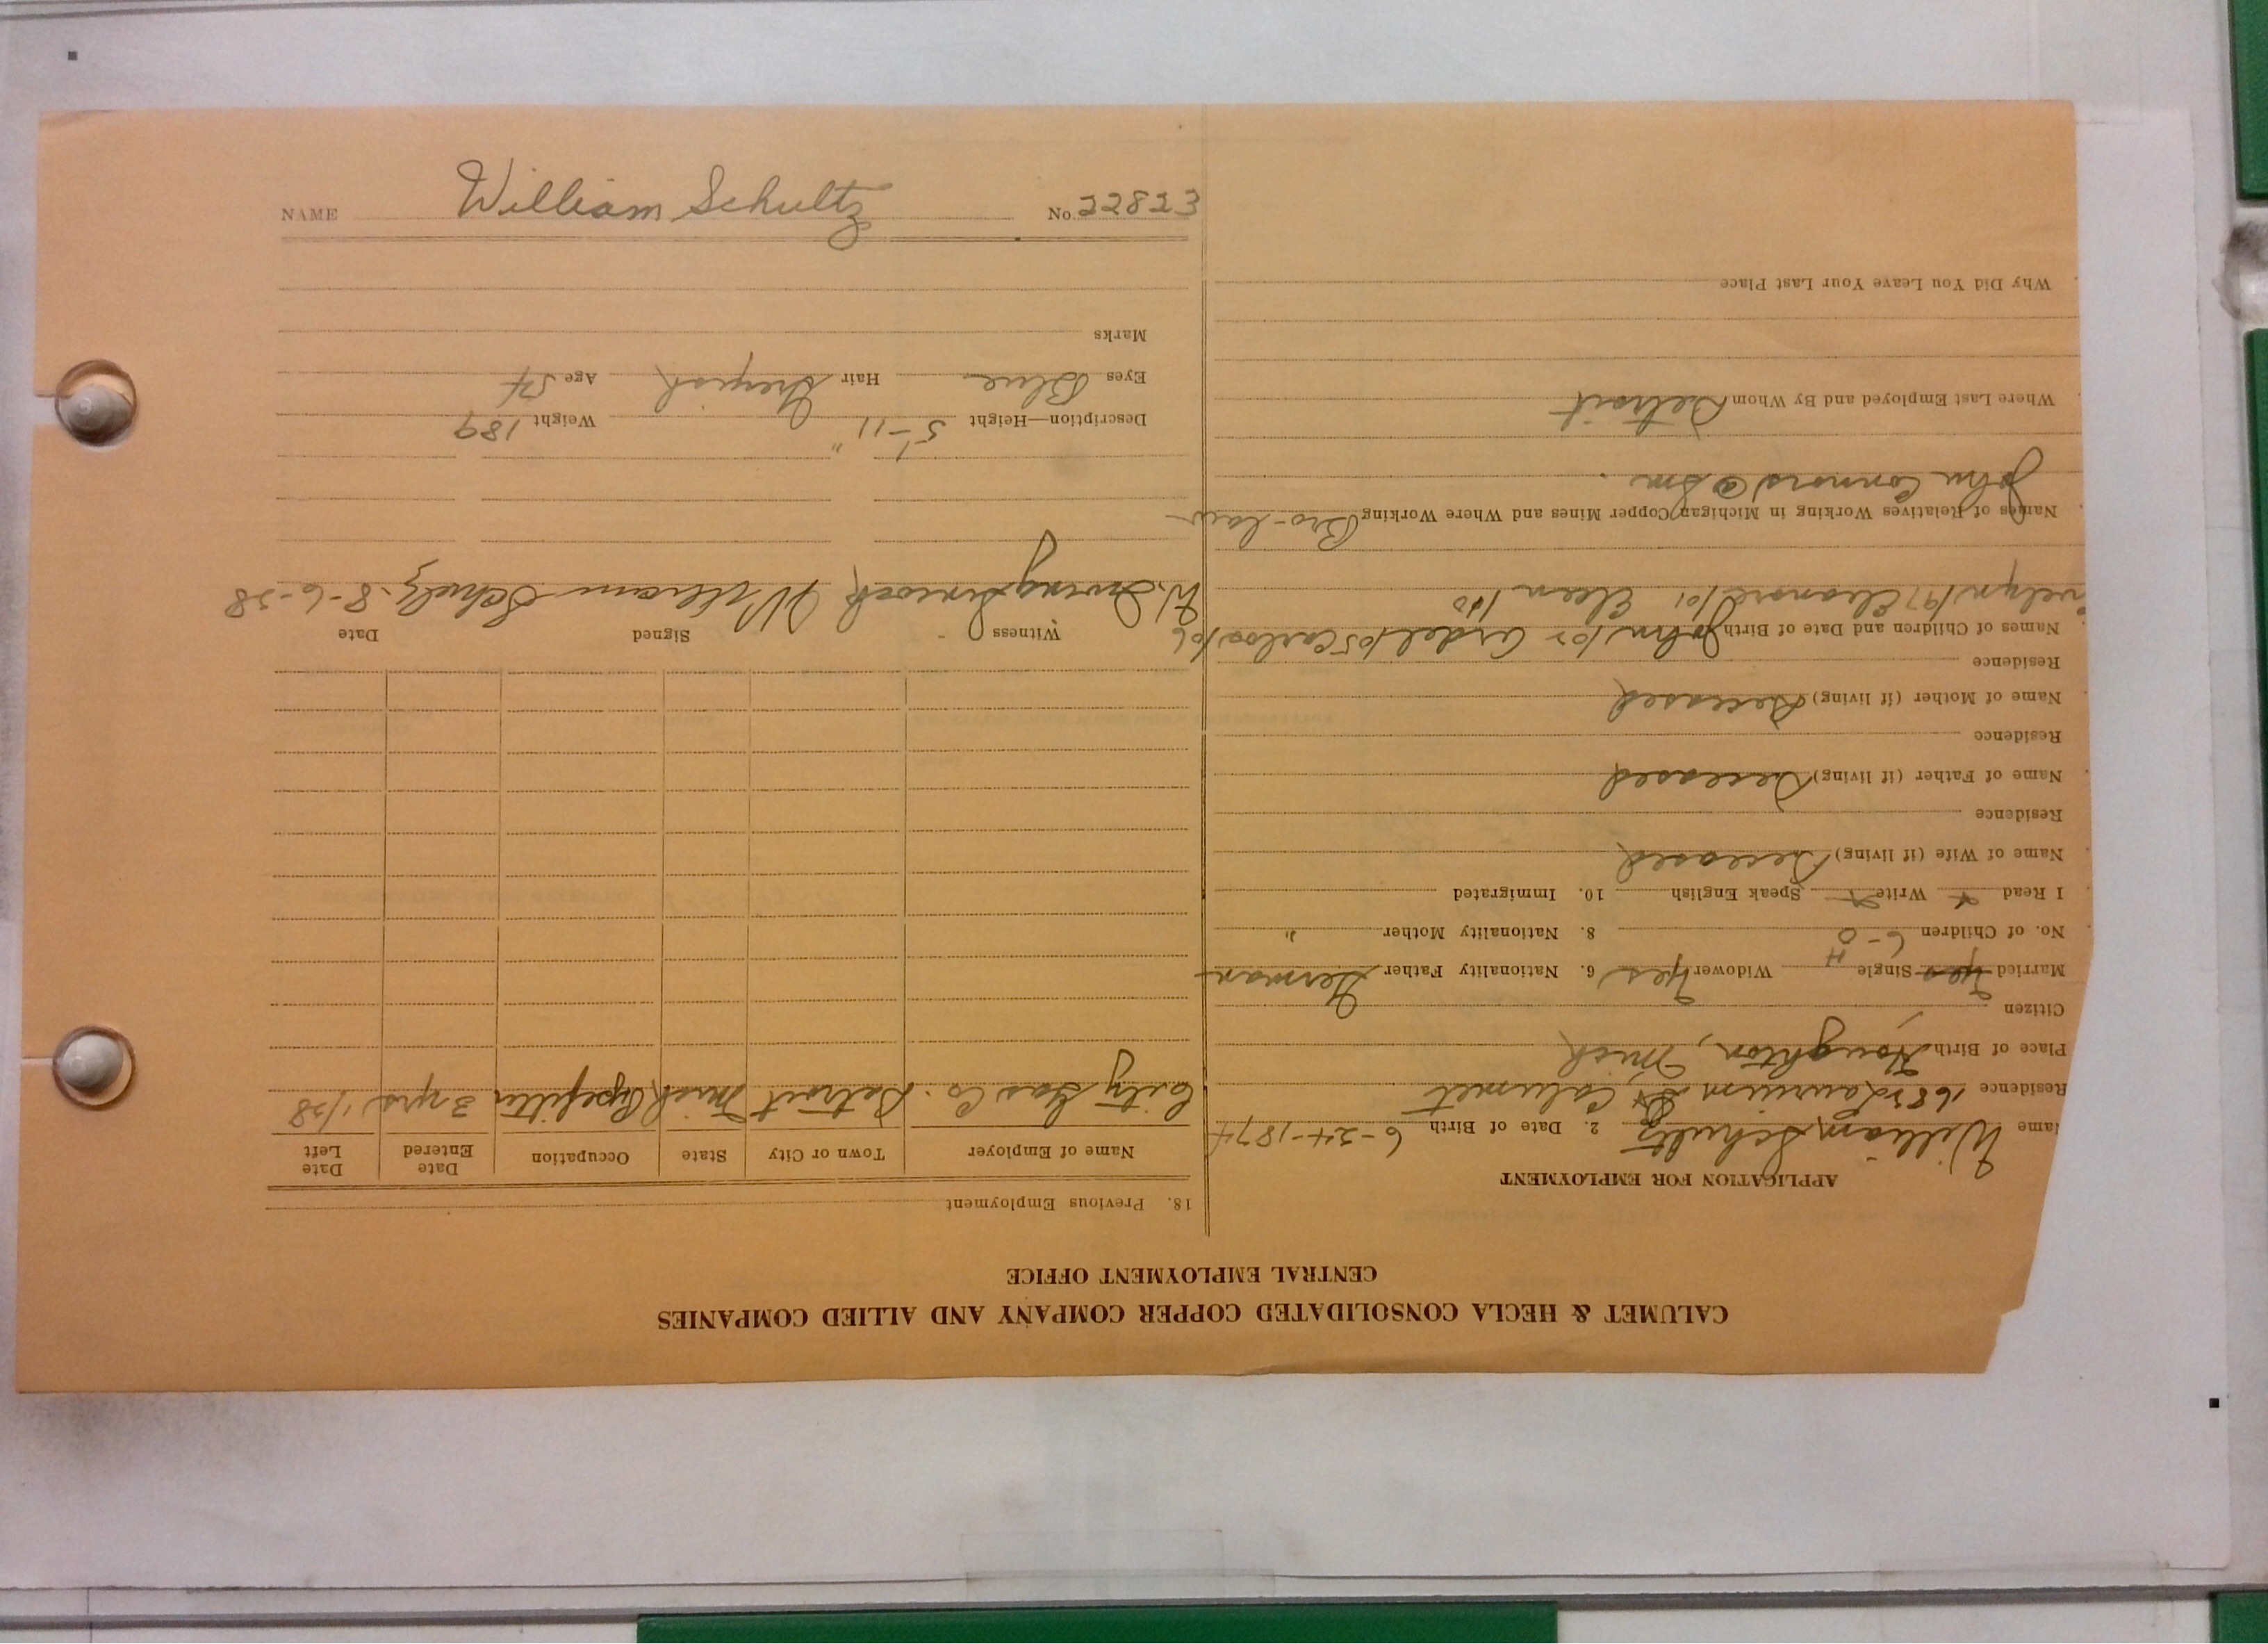 CALUMET & HECLA CONSOLIDATED COPPER COMPANY AND ALLIED COMPANIES
CENTRAL EMPLOYMENT OFFICE
APPLICATION FOR EMPLOYMENT
ame William Schultz 2. Date of Birth 6-24-1874
Residence 1683 Laurium St Calumet
Place of Birth Houghton, Mich
Citizen
Married Yes Single Widower Yes 6. Nationality Father German
No. of Children 6-0 8. Nationality Mother "
I Read x Write x Speak English 10. Immigrated
Name of Wife (if living) Deceased
Residence
Name of Father (if living) Deceased
Residence
Name of Mother (if living) Deceased
Residence
Names of Children and Date of Birth John/03 Ardel/05 Carlos/06
velyn/97 Eleanore/01 Eleen/00
Names of Relatives Working in Michigan Copper Mines and Where Working Bro-law
John Connors @ Sm.
Where Last Employed and By Whom Detroit
Why Did You Leave Your Last Place
18. Previous Employment
Name of Employer Town or City State Occupation Date Entered Date Left
City Gas Co. Detroit Mich Pipefitter 3 yrs 1/38
Witness Signed Date
W. Irving William Schultz 8-6-38
Description—Height 5'-11" Weight 189
Eyes Blue Hair Greyish Age 54
Marks
NAME William Schultz No. 22823